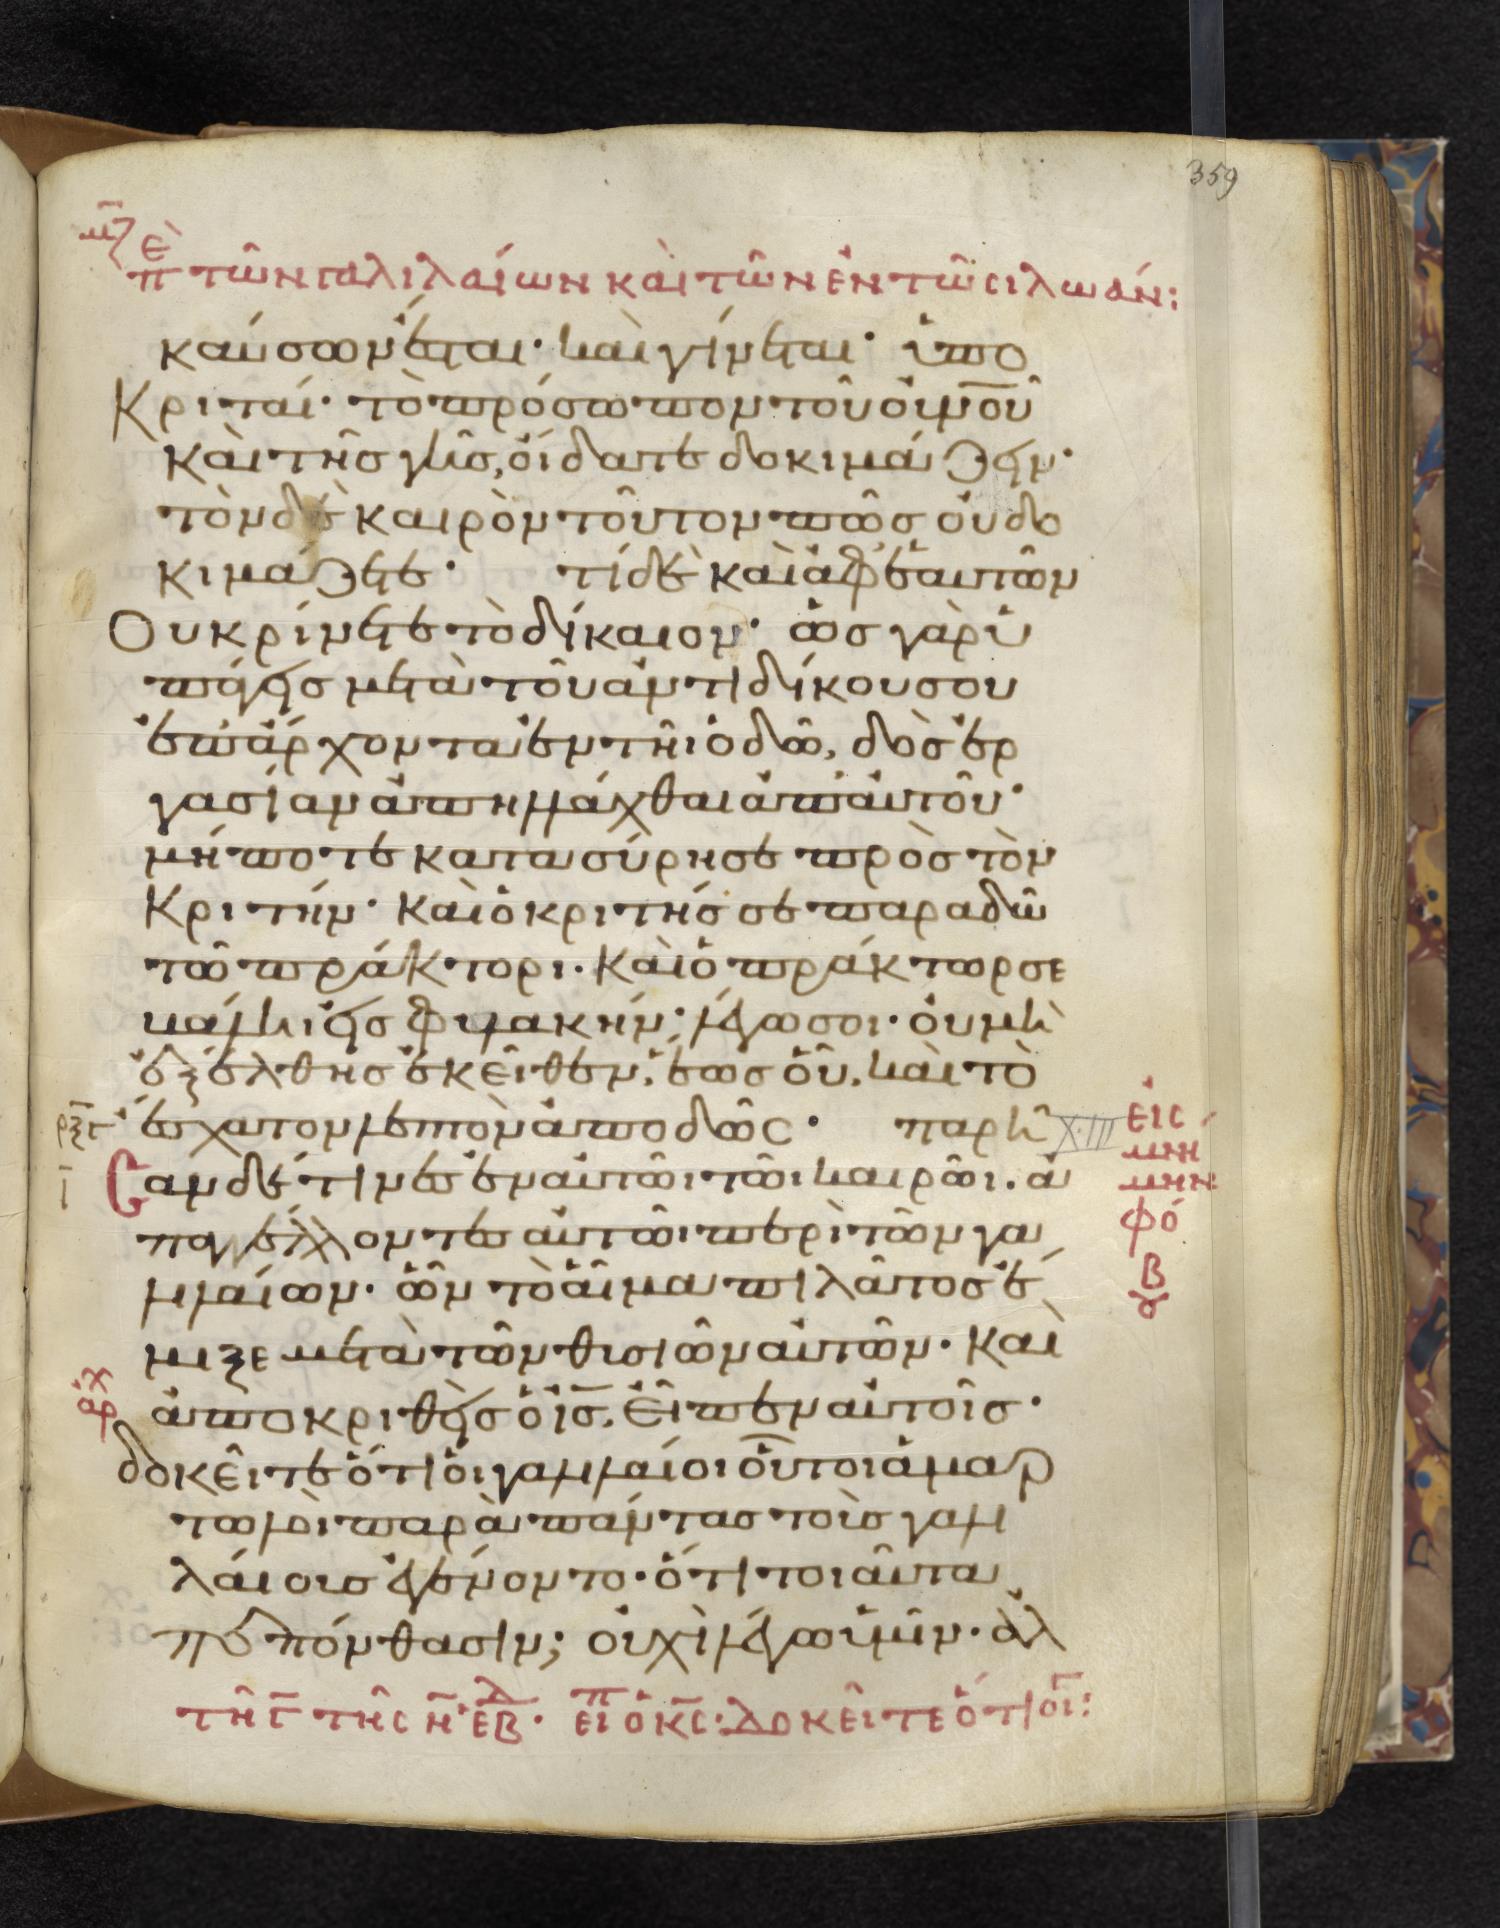 359
μζ
πε τῶν γαλιλαίων καὶ τῶν ἐν τῶ σιλωάν:
καύσων ἔσται· καὶ γίνεται· ὑπο
κριταί· τὸ πρόσωπον τοῦ οὐ̅ν̅οῦ
καὶ τῆς γῆς, οἴδατε δοκιμάζειν·
τὸν δὲ καιρὸν τοῦτον πῶς οὐ δο
κιμάζετε· τί δὲ καὶ ἀφ' ἑαυτῶν
οὐ κρίνετε τὸ δίκαιον· ὡς γὰρ ὑ
πάγεις μετὰ τοῦ ἀντιδίκου σου
ἐπ' ἄρχοντα ἐν τῆι ὁδῶ, δὸς ἐρ
γασίαν ἀπηλλάχθαι ἀπ' αὐτοῦ·
μήποτε κατασύρη σε πρὸς τὸν
κριτήν· καὶ ὁ κριτής σε παραδῶ
τῶ πράκτορι· καὶ ὁ πράκτωρ σε
βάλλη εἰς φυλακήν· λέγω σοι· οὐ μὴ
ἐξέλθης ἐκεῖθεν, ἕως οὗ, καὶ τὸ
ἔσχατον λεπτὸν ἀποδῶς· παρῆ X·III
ρξϛ
ι
εἰς μνημην φό
β
Παρῆσαν δέ τινες ἐν αὐτῶι τῶι καιρῶι· ἀ
παγγέλλοντες αὐτῶι περὶ τῶν γα
λιλαίων· ὧν τὸ αἷμα πιλᾶτος ἔ
μιξε μετὰ τῶν θυσιῶν αὐτῶν· καὶ
ἀρχ
ἀποκριθεὶς ὁ ι̅ς̅, εἶπεν αὐτοῖς·
δοκεῖτε ὅτι οἱ γαλιλαίοι οὗτοι ἁμαρ
τωλοὶ παρὰ πάντας τοὺς γαλι
λαίους ἐγένοντο· ὅτι τοιαῦτα
πεπόνθασιν; οὐχὶ λέγω ὑμῖν· ἀλ
τῆ γ̅ τῆς η̅ ἑβδ· εἶπ ὁ κ̅ς̅· δοκεῖτε ὅτι οἱ: